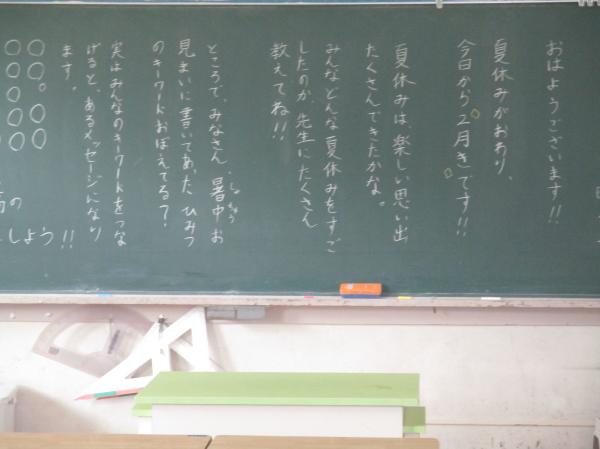 おはようございます!!
夏休みがおわり、
今日から“2月き”です!!
夏休みは、楽しい思い出
たくさんできたかな。
みんなどんな夏休みをすご
したのか、先生にたくさん
教えてね!!
ところで、みなさん、暑中お
しょちゅう
見まいに書いてあった ひみつ
のキーワードおぼえてる？
実はみんなのキーワードをつな
げると、あるメッセージになり
ます。
○○○。○○
○○○○○
の
しよう!!